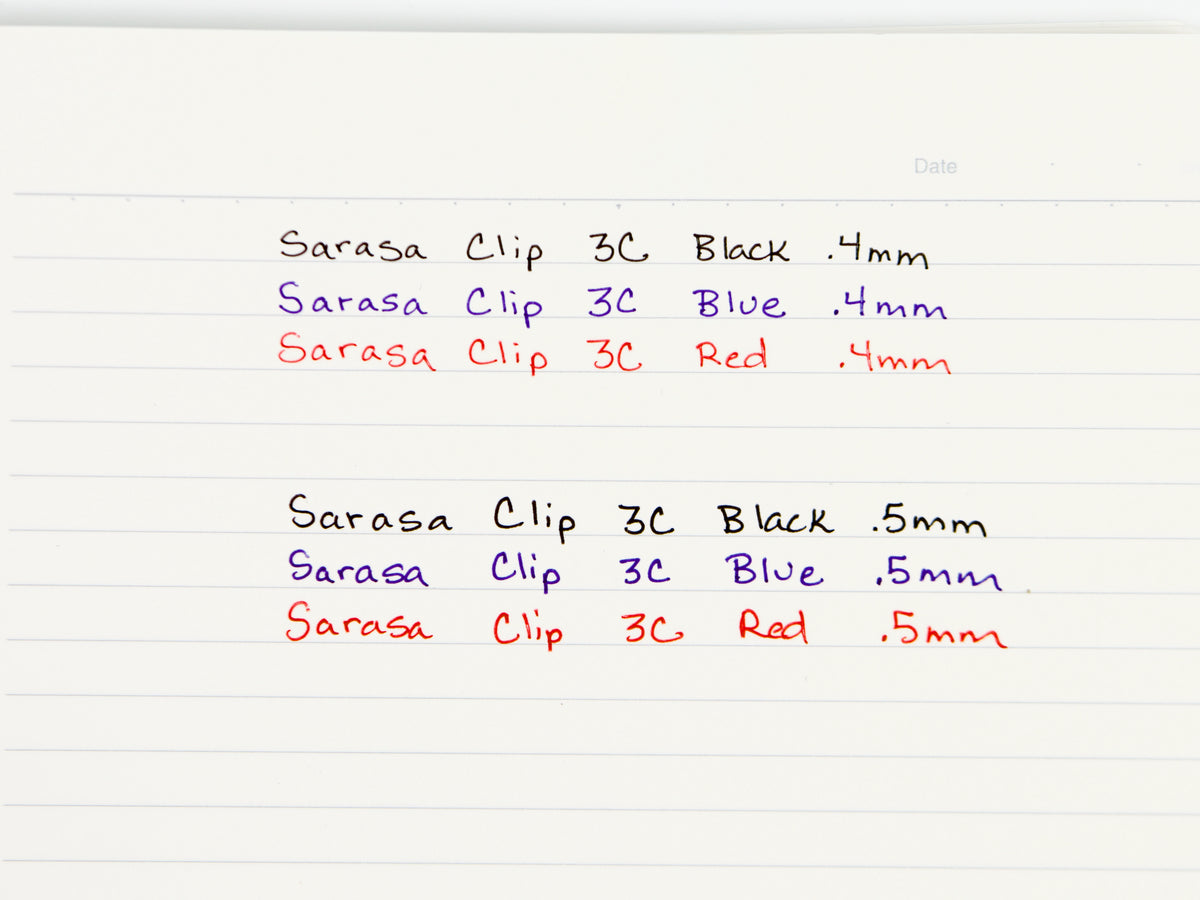 Date
Sarasa Clip 3C Black .4mm
Sarasa Clip 3C Blue .4mm
Sarasa Clip 3C Red .4mm
Sarasa Clip 3C Black .5mm
Sarasa Clip 3C Blue .5mm
Sarasa Clip 3C Red .5mm